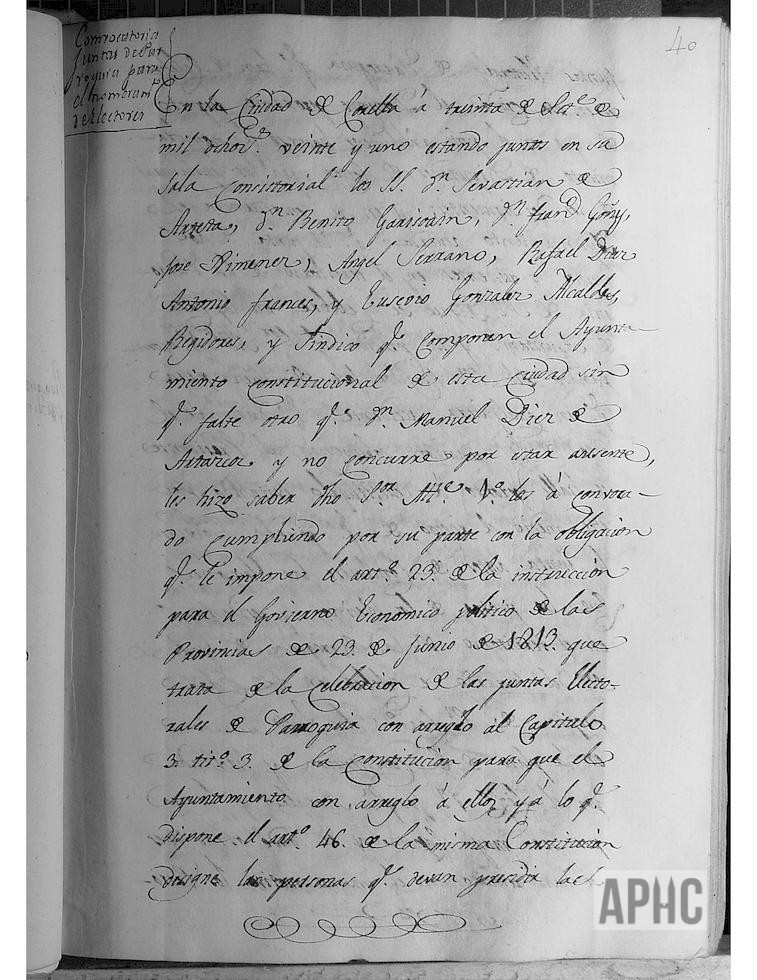 40
Convocatoria
Juntas de Par
roquia para
el nombram.to
de Electores
En la Ciudad de Corella á treinta de Set.e de
mil ochoc.s veinte y uno estando juntos en sa
sala Consistorial los SS. D.n Sevastian de
Arteta, D.n Benito Garisoain, D.n Fran.co Goñy,
Jose Ximenez, Angel Serrano, Rafael Diaz
Antonio frances, y Eusevio Gonzalez Alcaldes,
Regidores, y Sindico q.e componen el Ayunta-
miento constitucional de esta Ciudad sin
q.e falte otro q.e D.n Manuel Diez de
y no concurre por estar ausente,
les hizo saber dho S.or Alc.e 1.o los á convoca-
do cumpliendo por su parte con la obligacion
q.e le impone el art.o 23. de la instruccion
para el Govierno Economico politico de las
Provincias de 23. de Junio de 1813. que
trata de la Celebracion de las juntas Electo-
rales de Parroquia con arreglo al Capitulo
3. tit.o 3. de la Constitucion para que el
Ayuntamiento con arreglo á ello, y á lo q.e
dispone el art.o 46. de la misma Constitucion
designe las personas q.e devan presidir las
APHC